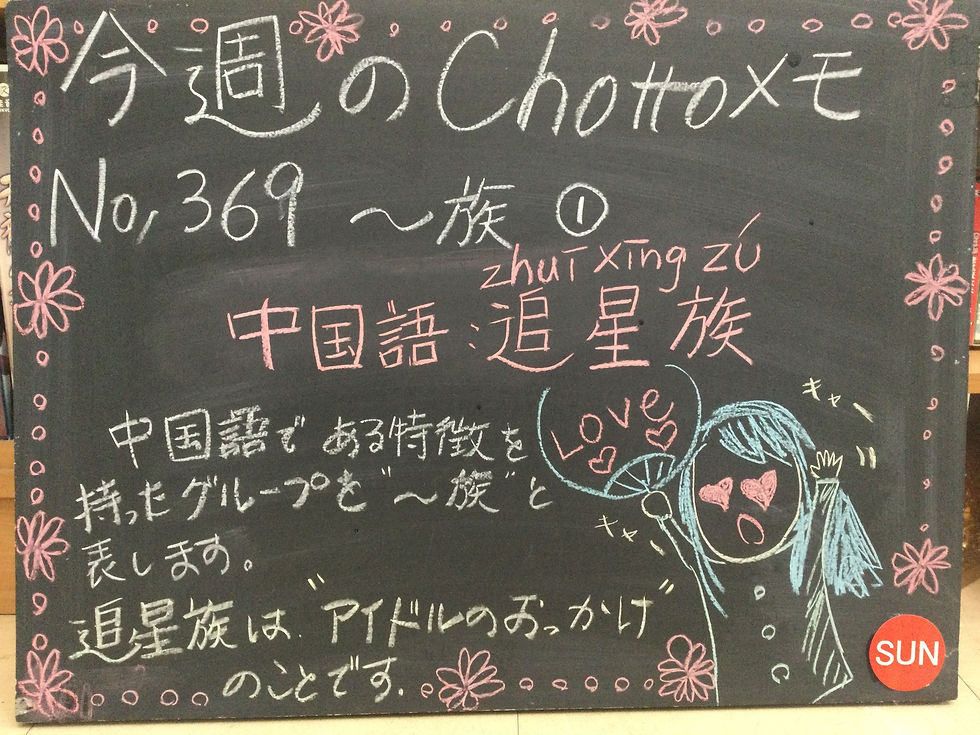 今週のChottoメモ
No,369 ~族 ①
zhuī xīng zú
中国語:追星族
中国語である特徴を
持ったグループを"~族"と
表します。
追星族は"アイドルのおっかけ"
のことです.
LOVE
キャー
キャー
SUN